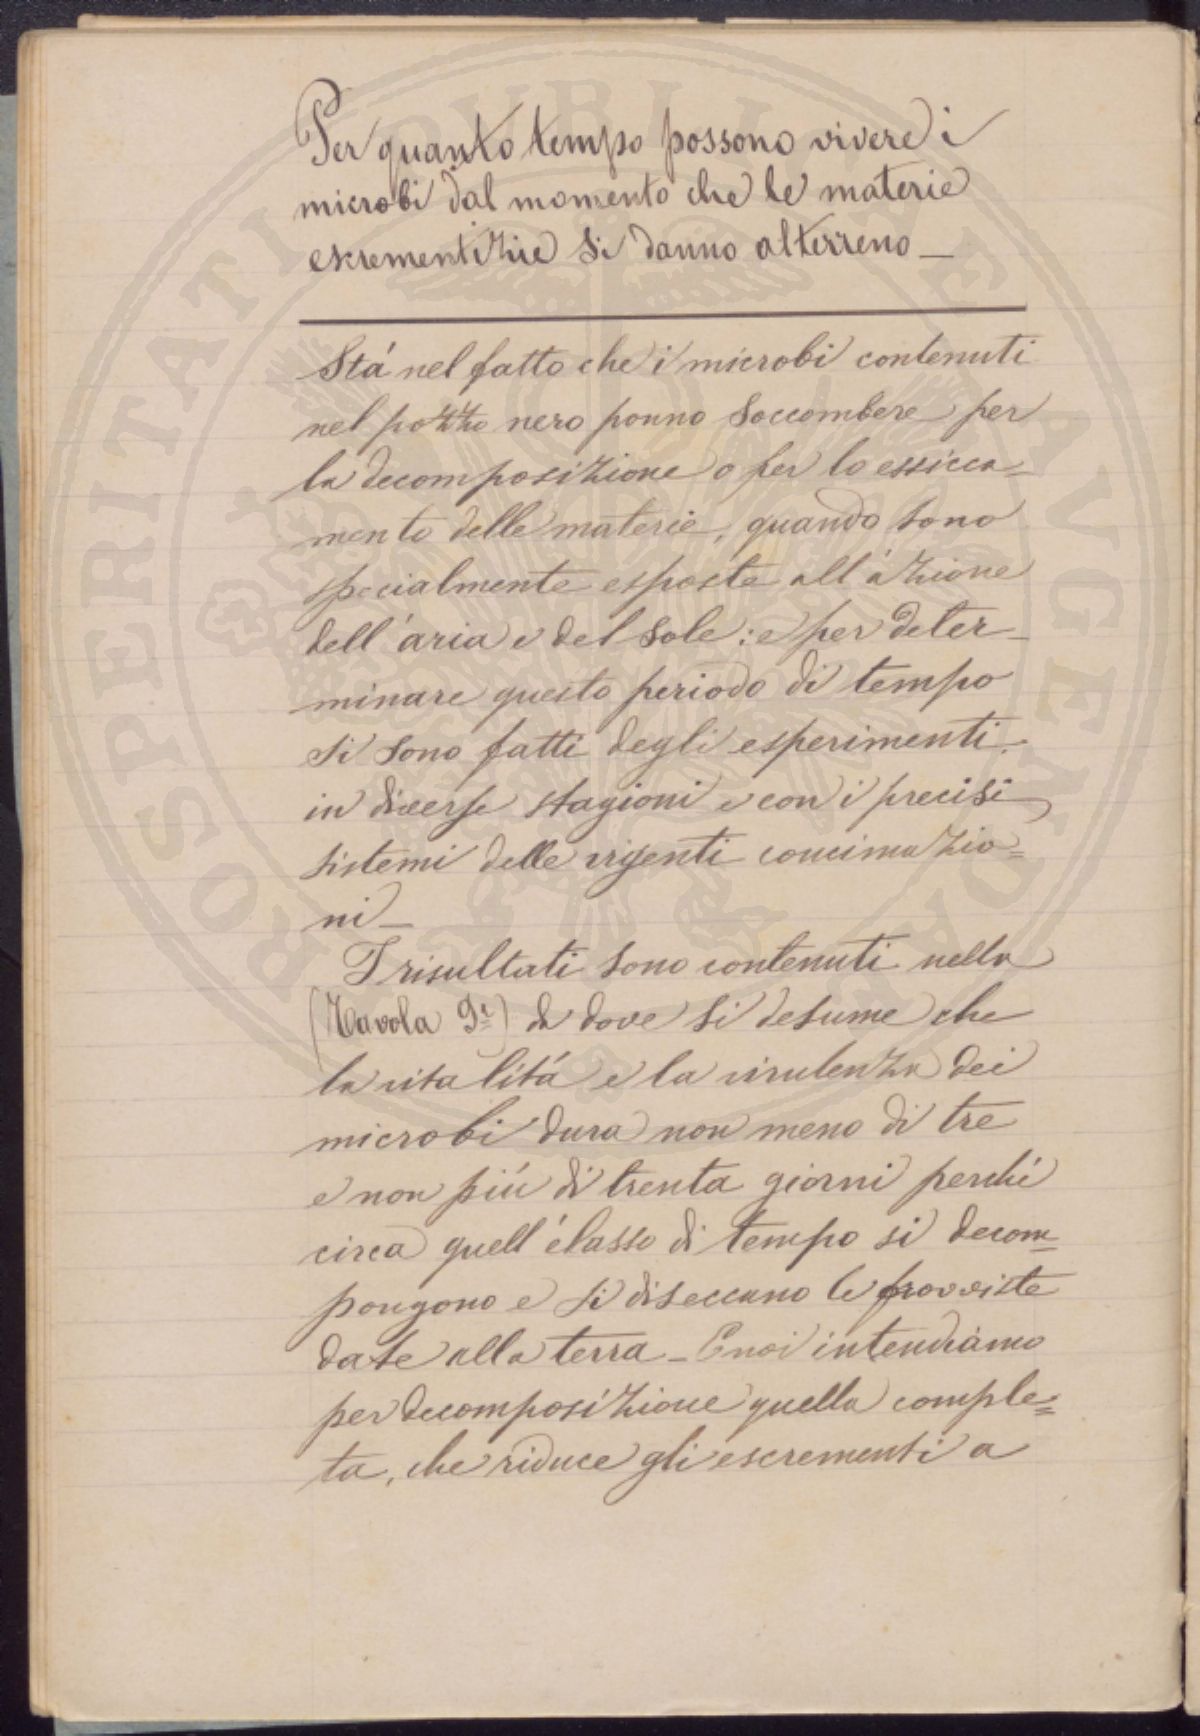 Per quanto tempo possono vivere i
microbi dal momento che le materie
escrementizie si danno al terreno _
Stá nel fatto che i microbi contenuti
nel pozzo nero ponno soccombere per
la decomposizione o per lo essicca_
mento delle materie, quando sono
specialmente esposte all'azione
dell'aria e del sole: e per deter_
minare questo periodo di tempo
si sono fatti degli esperimenti
in diverse stagioni e con i precisi
sistemi delle vigenti concimazio=
ni _
I risultati sono contenuti nella
(Tavola 9ª) da dove si desume che
la vitalitá e la virulenza dei
microbi dura non meno di tre
e non piú di trenta giorni perché
circa quell'élasso di tempo si decom=
pongono e si diseccano le provviste
date alla terra _ E noi intendiamo
per decomposizione quella comple=
ta, che riduce gli escrementi a
PROSPERITATI PUBLICAE AVGENDAE